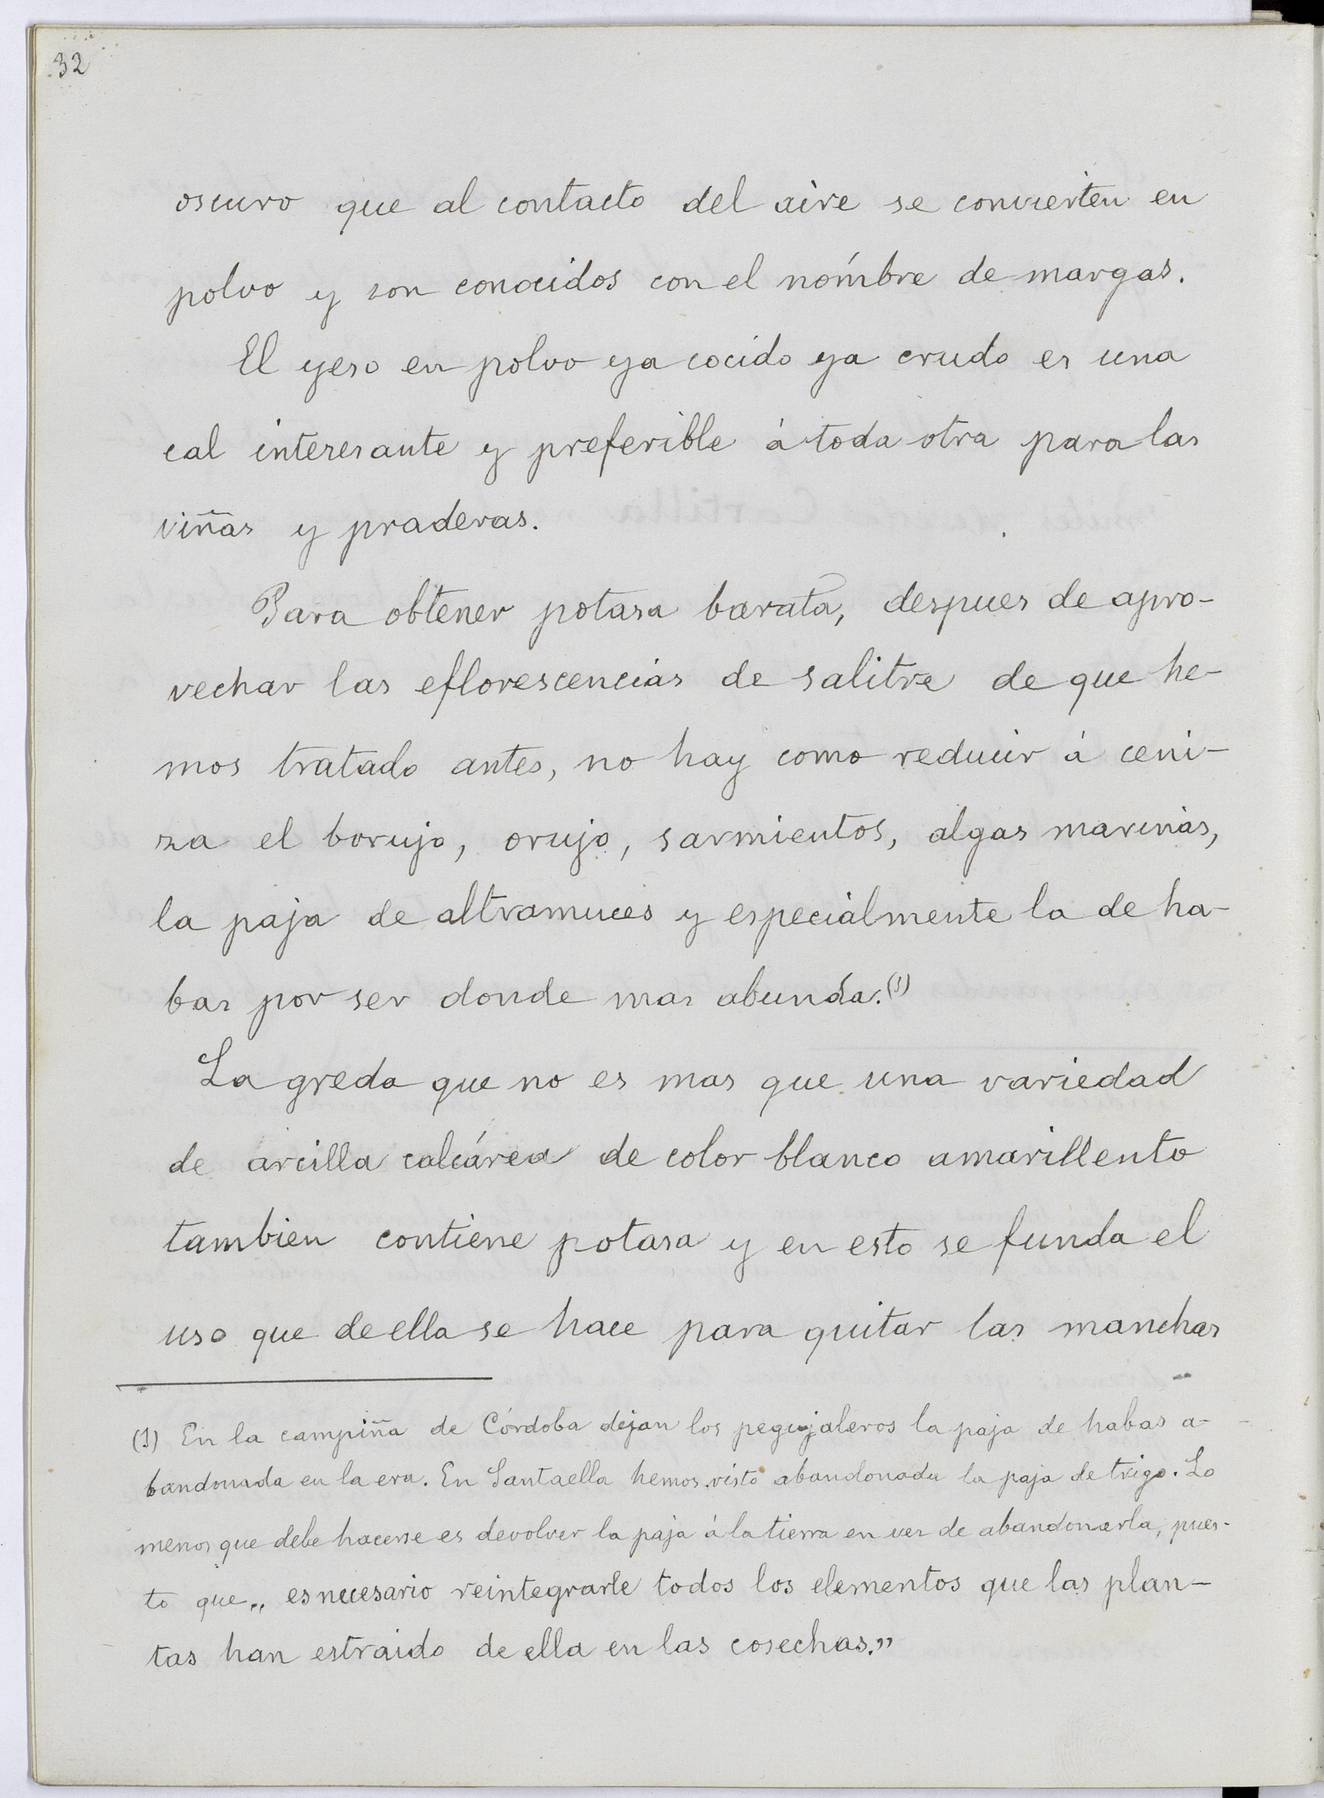 32
oscuro que al contacto del aire se convierten en
polvo y son conocidos con el nombre de margas.
El yeso en polvo ya cocido ya crudo es una
cal interesante y preferible á toda otra para las
viñas y praderas.
Para obtener potasa barata, despues de apro-
vechar las eflorescencias de salitre de que he-
mos tratado antes, no hay como reducir á ceni-
za el borujo, orujo, sarmientos, algas marinas,
la paja de altramuces y especialmente la de ha-
bas por ser donde mas abunda.(1)
La greda que no es mas que una variedad
de arcilla calcárea de color blanco amarillento
tambien contiene potasa y en esto se funda el
uso que de ella se hace para quitar las manchas
(1) En la campiña de Córdoba dejan los pegujaleros la paja de habas a-
bandonada en la era. En Santaella hemos visto abandonada la paja de trigo. Lo
menos que debe hacerse es devolver la paja á la tierra en vez de abandonarla, pues-
to que „ es necesario reintegrarle todos los elementos que las plan-
tas han estraido de ella en las cosechas.”